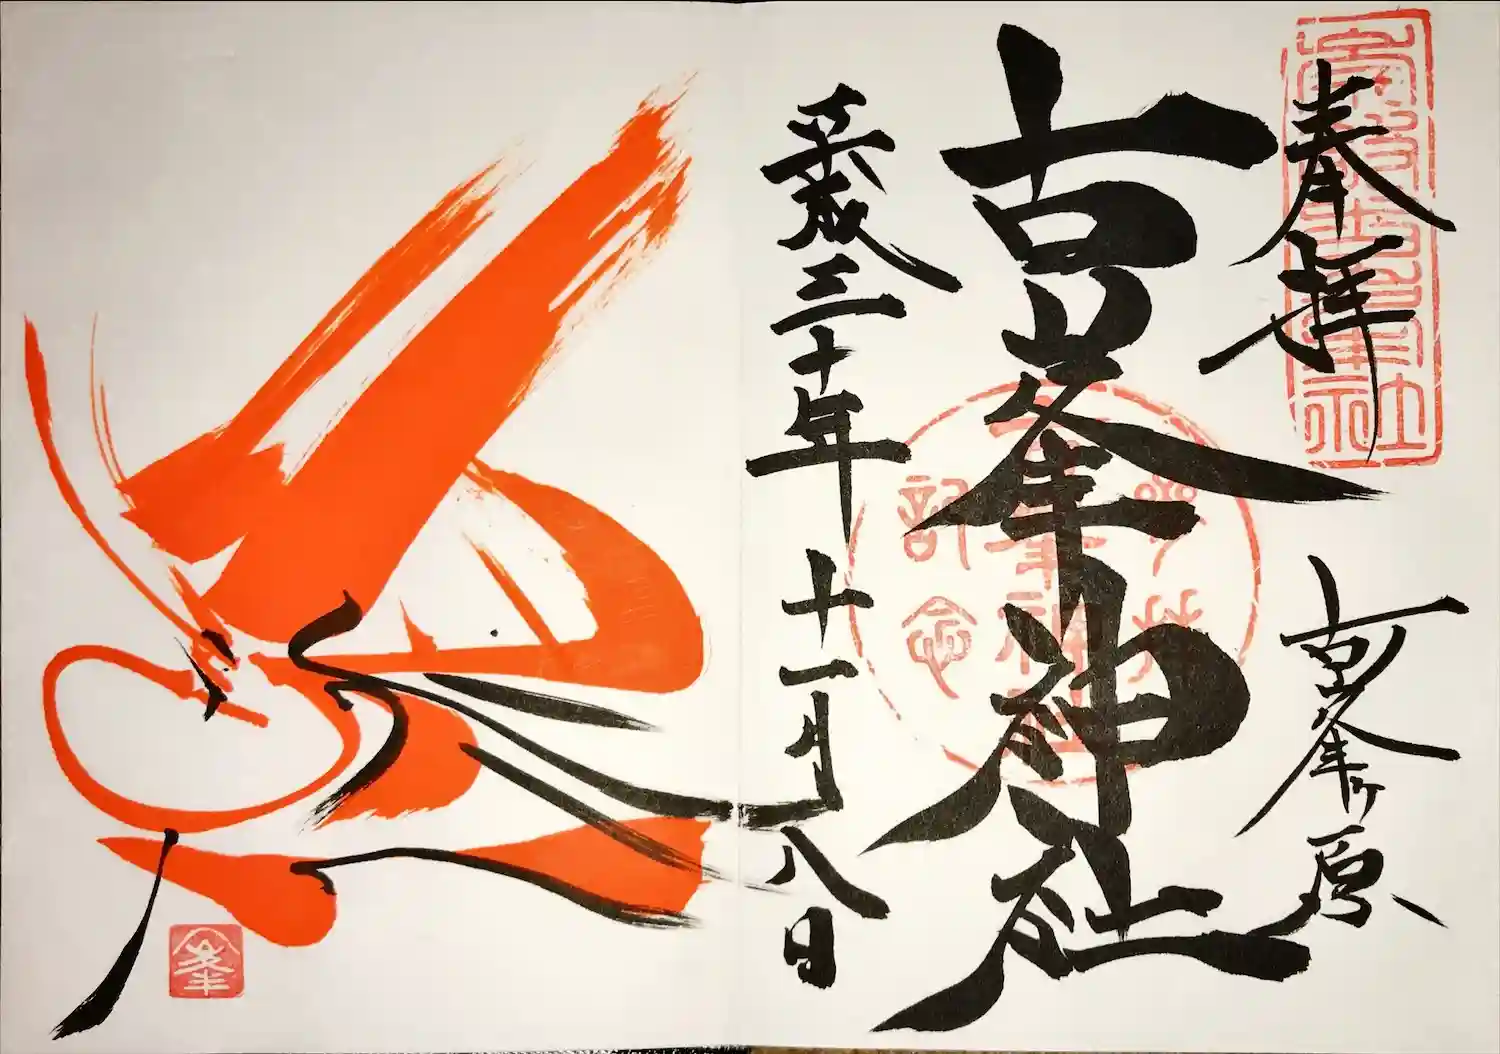 奉拝
古峯ヶ原
古峯神社
平成三十年十一月八日
記念
峯